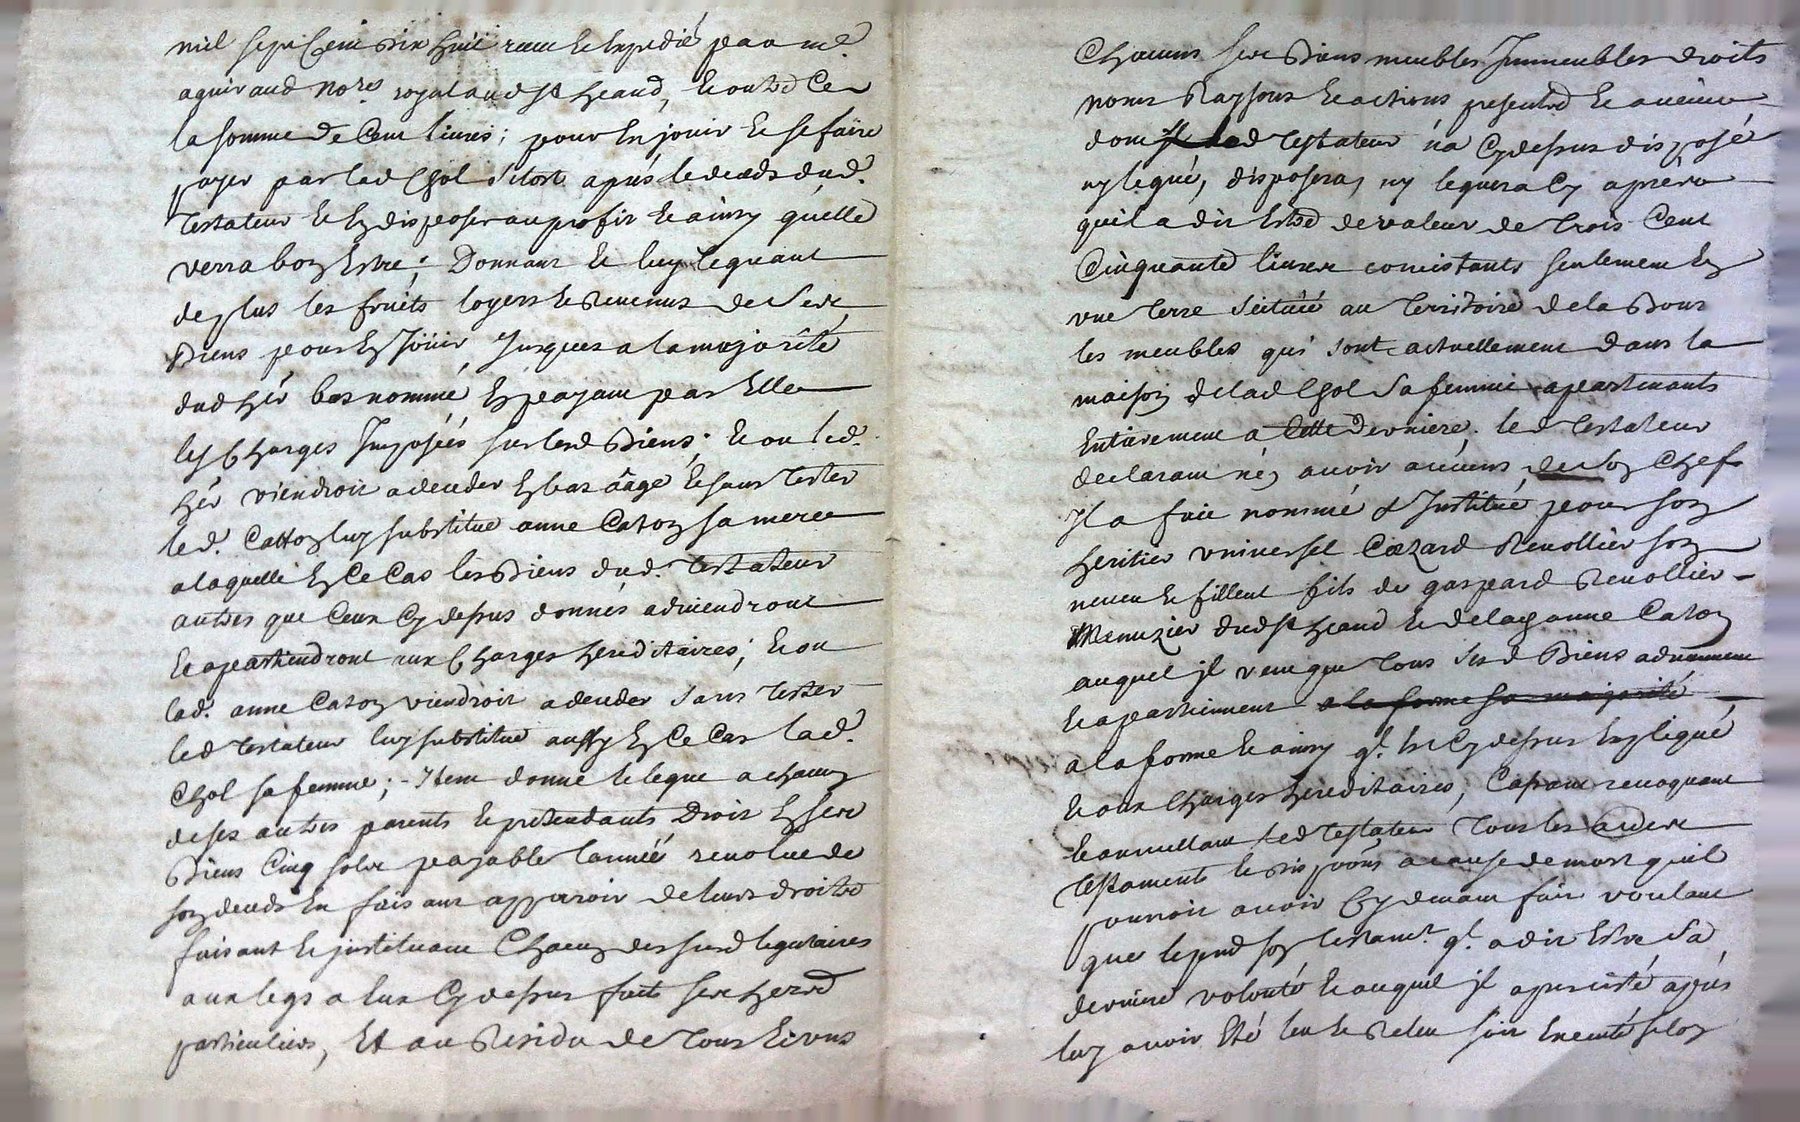 mil sept Cent dix huit receu et expedié par me
aguiraud no.re royal aud st heand, et outre Ce
la somme de Cent livres; pour en jouir et se faire
payer par lad Chol sitost aprés le deceds dud.
testateur et en disposer au profit et ainsy qu'elle
verra bon Estre; Donnant et luy leguant
de plus les fruits loyers et Revenus de ses
Biens pour En Jöuir Jusques a la majorité
dud hér bas nommé En payant par Elle
les Charges Imposées sur lesd Biens; et ou led.
hér viendroit a deceder En bas âage et sans tester
led. Catton luy substitue anne Caton sa mere
a laquelle En Ce Cas les Biens dud. testateur
autres que Ceux Cy dessus donnés adviendront
et apartiendront aux Charges hereditaires; et ou
lad. anne Caton viendroit a deceder sans tester
led testateur luy substitue aussy En Ce Cas lad.
Chol sa femme; - Item donne et legue a chacun
de ses autres parents et pretendants Droit En ses
Biens Cinq sols payable l'année revolue de
son deceds En faisant apparoir de leurs droits
faisant et instituant Chacun des susd legataires
aux legs a Eux Cy dessus faits ses herrs
particuliers, Et au Residu de tous Et uns
Chacuns ses Biens meubles Immeubles droits
noms Raysons et actions presents et avenir
dont Il led testateur n'a Cy dessus disposé
ny legué, disposera, ny leguera Cy aprés
qu'il a dit Estre de valeur de trois Cent
Cinquante livres concistants seulement En
une terre scituée au territoire de la
les meubles qui sont actuellement dans la
maison de lad Chol sa femme apartenants
Entierement a Cette Derniere, led testateur
declarant n'en avoir aucuns de son Chef
Il a fait nommé & Institué pour son
heritier universel Cæzard Revollier son
neveu et filleul fils de gaspard Revollier
Menuzier dud st heand et de lad anne Caton
auquel jl veut que tous sesd Biens adviennent
et apartiennent a la forme sa majorité
a la forme et ainsy q.l Est Cy dessus Expliqué
et aux Charges hereditaires, Cassant revoquant
et annullant led testateur tous les autres
testaments et dispoons a cause de mort qu'il
pourroit avoir Cy devant fait voulant
que le pnt son testamt. q.l a dit Estre sa
derniere volonté et auquel jl a persisté aprés
luy avoir Eté leu et Releu soit Executé selon